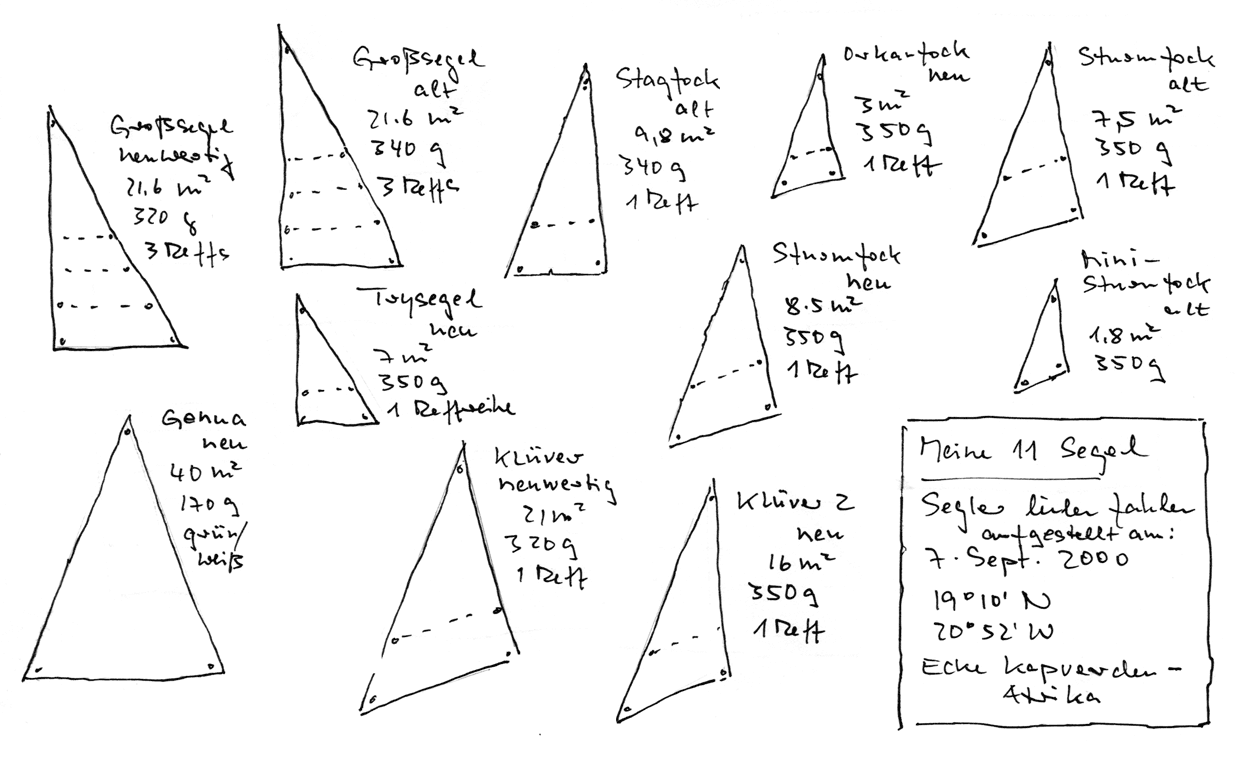 Großsegel
neuwertig
21,6 m²
320 g
3 Reffs
Großsegel
alt
21.6 m²
340 g
3 Reffs
Stagfock
alt
9,8 m²
340 g
1 Reff
Orkanfock
neu
3 m²
350 g
1 Reff
Sturmfock
alt
7,5 m²
350 g
1 Reff
Trysegel
neu
7 m²
350 g
1 Reffreihe
Sturmfock
neu
8.5 m²
350 g
1 Reff
Mini-
Sturmfock
alt
1,8 m²
350 g
Genua
neu
40 m²
170 g
grün/
weiß
Klüver
neuwertig
21 m²
320 g
1 Reff
Klüver 2
neu
16 m²
350 g
1 Reff
Meine 11 Segel
Segler
aufgestellt am:
7. Sept. 2000
19° 10' N
20° 52' W
Ecke Kapverden -
Afrika